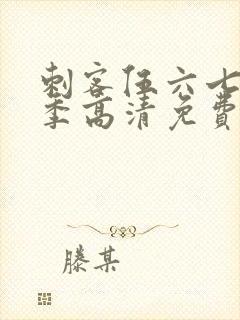 刺客伍六七
季高清免费
滕某